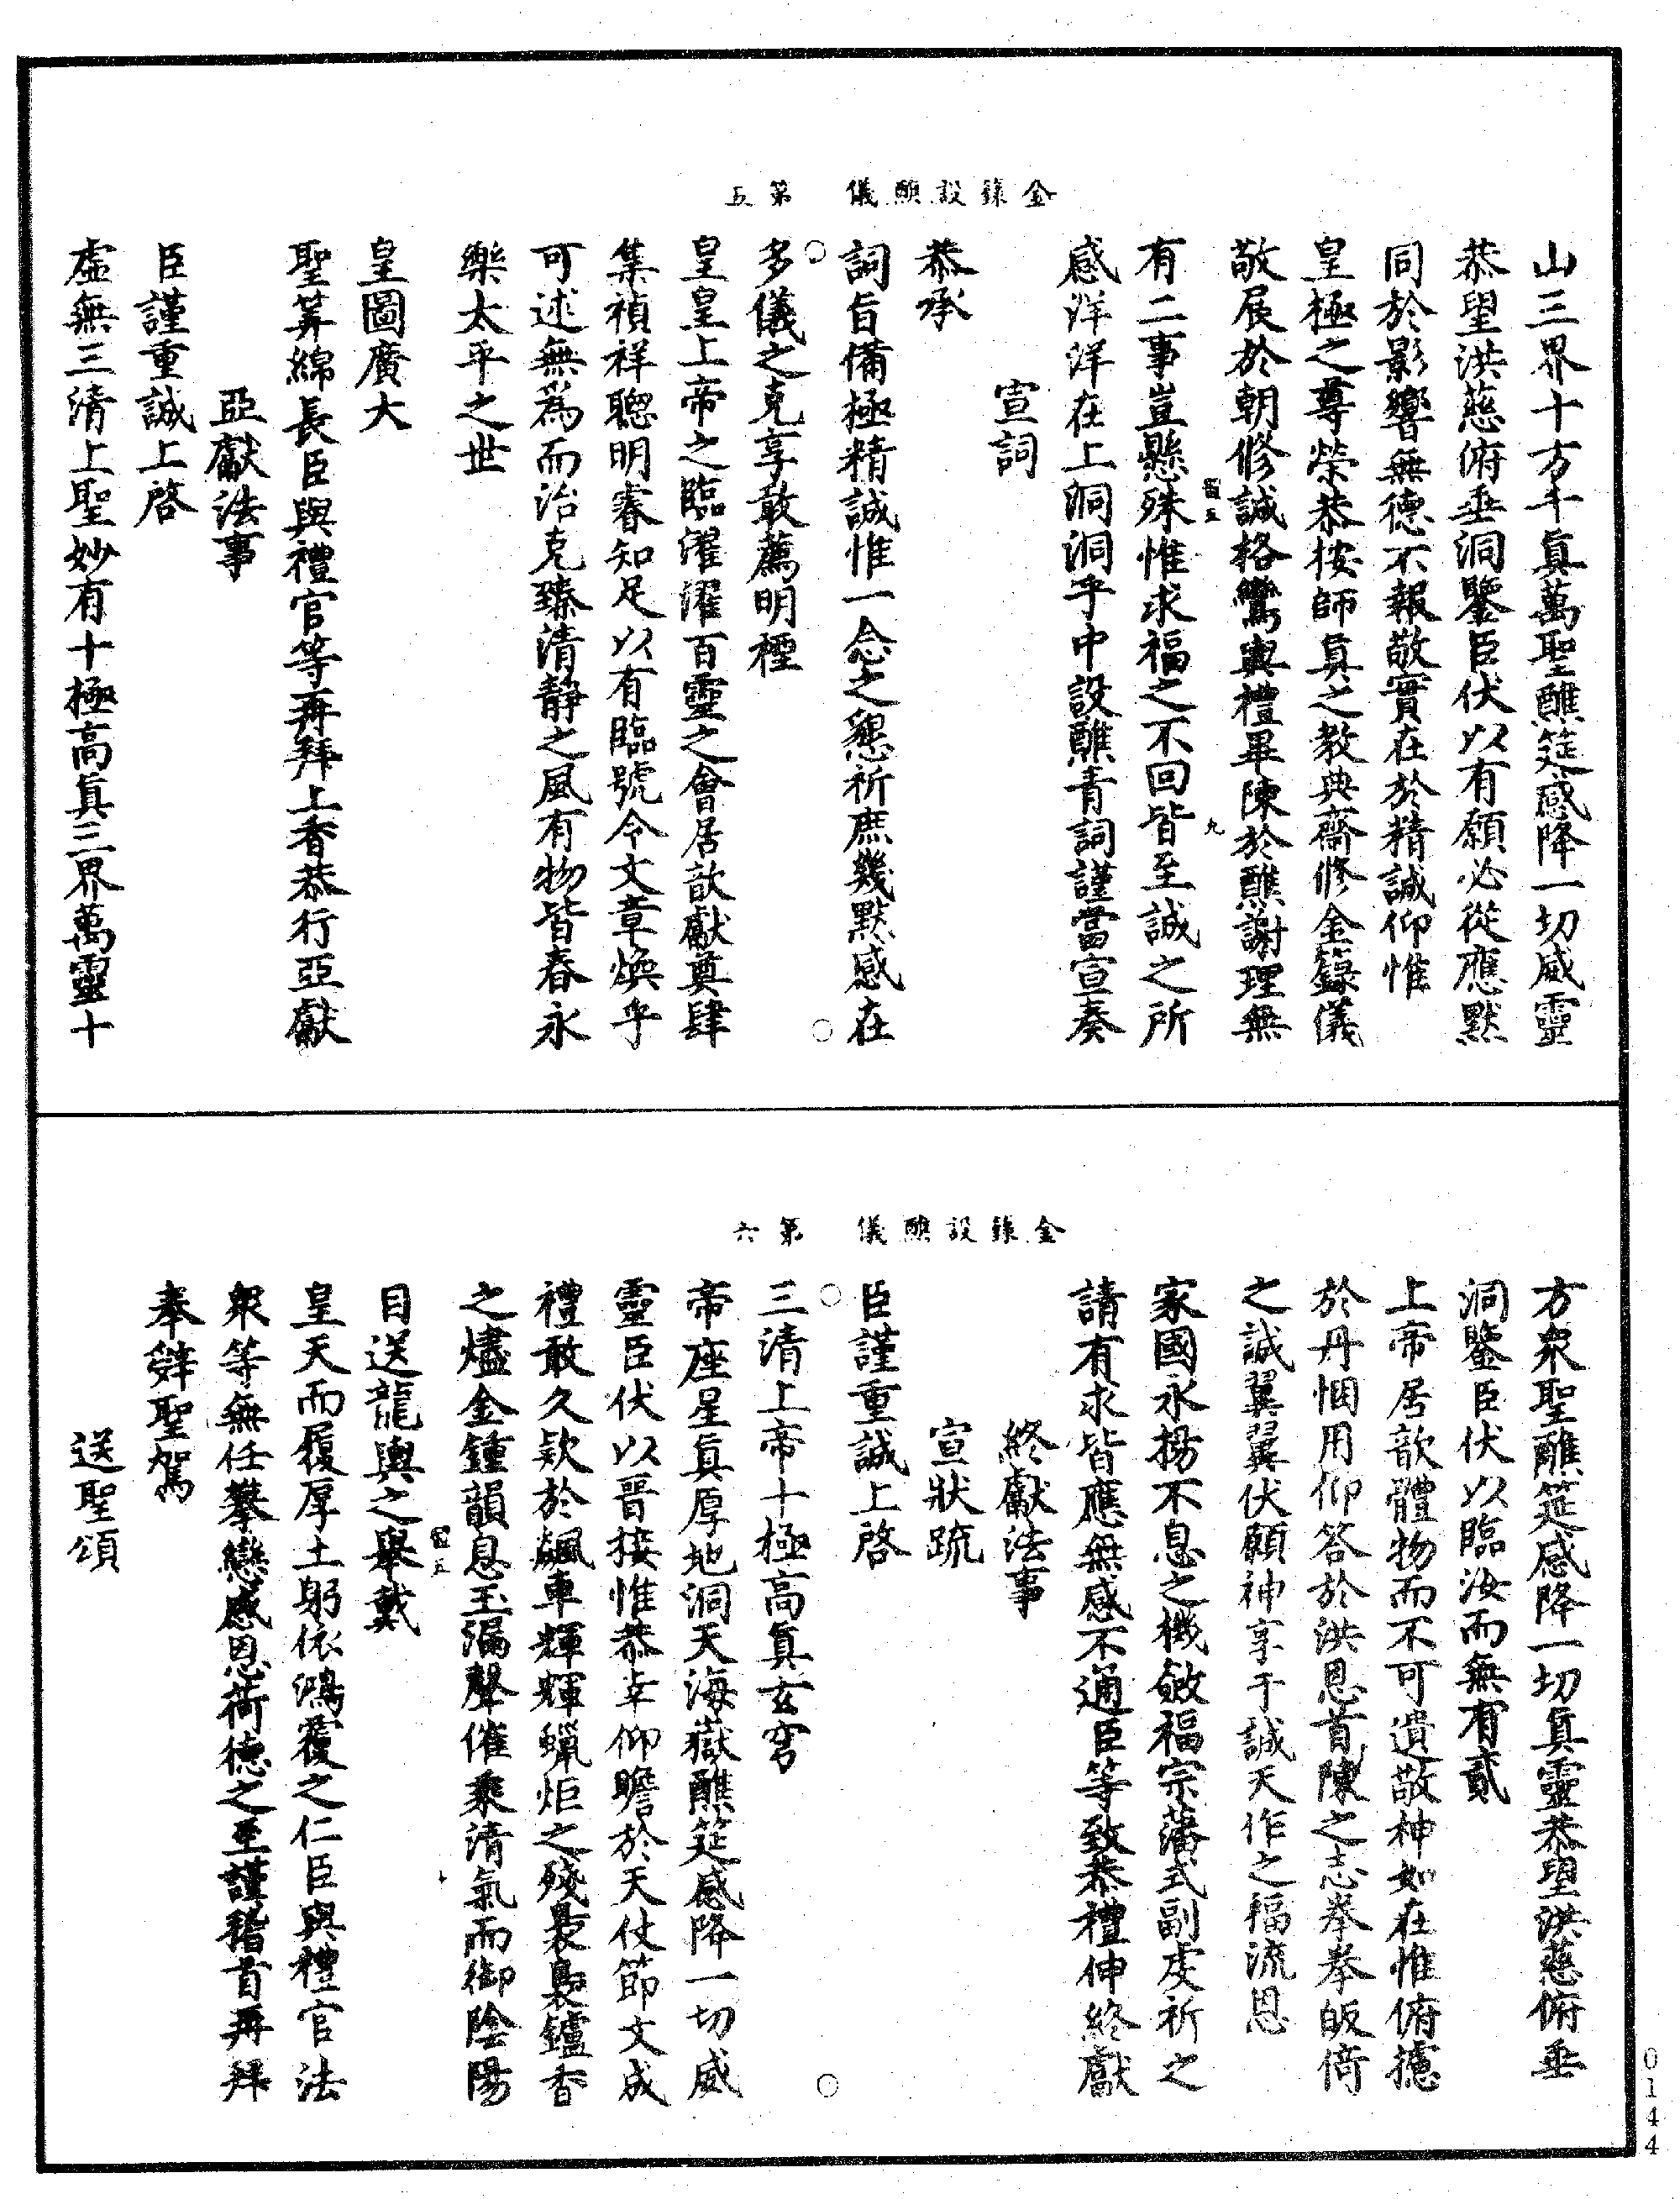 金籙設醮儀　第五
山三界十方千真萬聖醮筵感降一切威靈
恭望洪慈俯垂洞鑒臣伏以有願必從應默
同於影響無德不報敬實在於精誠仰惟
皇極之尊榮恭按師真之教典齋修金籙儀
敬展於朝修誠格鸞輿禮畢陳於醮謝理無
有二事豈懸殊惟求福之不回皆至誠之所
感洋洋在上洞洞乎中設醮青詞謹當宣奏
宣詞
恭承
詞旨備極精誠惟一念之懇祈庶幾默感在
多儀之克享敢薦明禋
皇皇上帝之臨濯濯百靈之會居歆獻奠肆
集禎祥聰明睿知足以有臨號令文章煥乎
可述無爲而治克臻清靜之風有物皆春永
樂太平之世
皇圖廣大
聖筭綿長臣與禮官等再拜上香恭行亞獻
亞獻法事
臣謹重誠上啓
虛無三清上聖妙有十極高真三界萬靈十
金籙設醮儀　第六
方衆聖醮筵感降一切真靈恭望洪慈俯垂
洞鑒臣伏以臨汝而無有貳
上帝居歆體物而不可遺敬神如在惟俯攄
於丹悃用仰答於洪恩首陳之志拳拳皈倚
之誠翼翼伏願神享于誠天作之福流恩
家國永揚不息之機斂福宗藩式副虔祈之
請有求皆應無感不通臣等致恭禮伸終獻
終獻法事
宣狀疏
臣謹重誠上啓
三清上帝十極高真玄穹
帝座星真厚地洞天海嶽醮筵感降一切威
靈臣伏以晋接惟恭幸仰瞻於天仗節文成
禮敢久欵於飆車輝輝蠟炬之殘裊裊鑪香
之燼金鍾韻息玉漏聲催乘清氣而御陰陽
目送龍輿之舉戴
皇天而履厚土躬依鴻覆之仁臣與禮官法
衆等無任攀戀感恩荷德之至謹稽首再拜
奉辝聖駕
送聖頌
0144